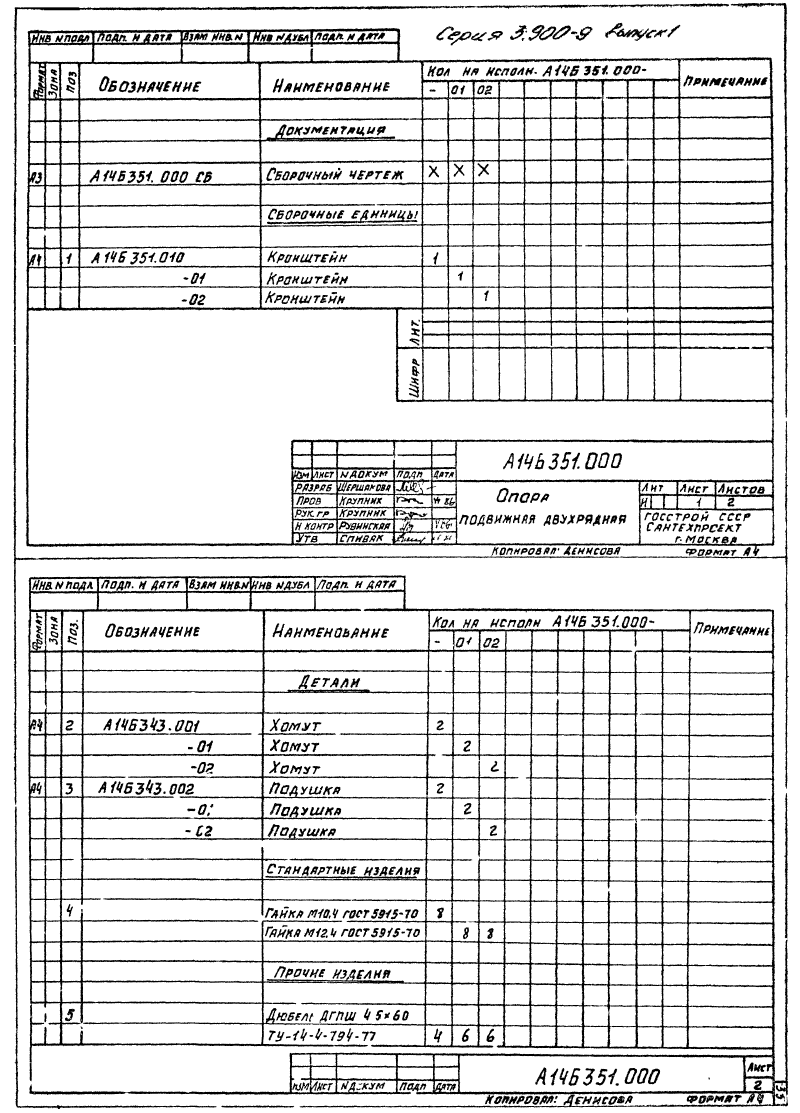 Серия 3.900-9 Выпуск 1
Инв N подл Подп. и дата Взам инв. N Инв N дубл Подп. и дата
Формат Зона Поз Обозначение Наименование Кол на исполн. А14Б351.000- Примечание
- 01 02
Документация
А3 А14Б351.000 СБ Сборочный чертеж X X X
Сборочные единицы
А4 1 А14Б351.010 Кронштейн 1
-01 Кронштейн 1
-02 Кронштейн 1
Лит.
Шифр
А14Б351.000
Изм Лист N докум Подп Дата
Разраб Шершакова
Пров Крупник
Рук. гр Крупник
Н контр Рувинская
Утв Спивак
Опора
подвижная двухрядная
Лит Лист Листов
И 1 2
Госстрой СССР
Сантехпроект
г. Москва
Копировал: Денисова Формат А4
Инв. N подл Подп. и дата Взам инв. N Инв N дубл Подп. и дата
Формат Зона Поз. Обозначение Наименование Кол на исполн А14Б351.000- Примечание
- 01 02
Детали
А4 2 А14Б343.001 Хомут 2
-01 Хомут 2
-02 Хомут 2
А4 3 А14Б343.002 Подушка 2
-01 Подушка 2
-02 Подушка 2
Стандартные изделия
4 Гайка М10.4 ГОСТ 5915-70 8
Гайка М12.4 ГОСТ 5915-70 8 8
Прочие изделия
5 Дюбель ДГПШ 4.5×60
ТУ-14-4-794-77 4 6 6
Изм Лист N докум Подп Дата
А14Б351.000
Лист
2
Копировал: Денисова Формат А4